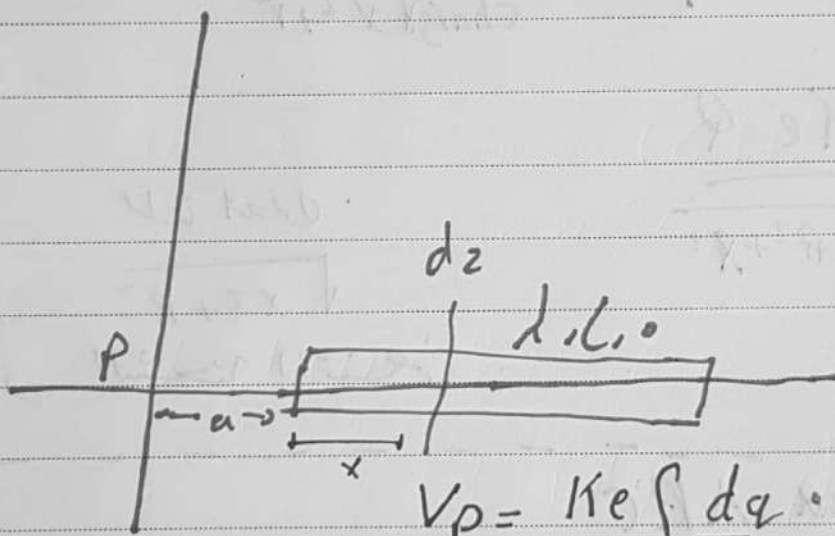 dz
λ, L, .
P
a
x
Vp = Ke ∫ dq .